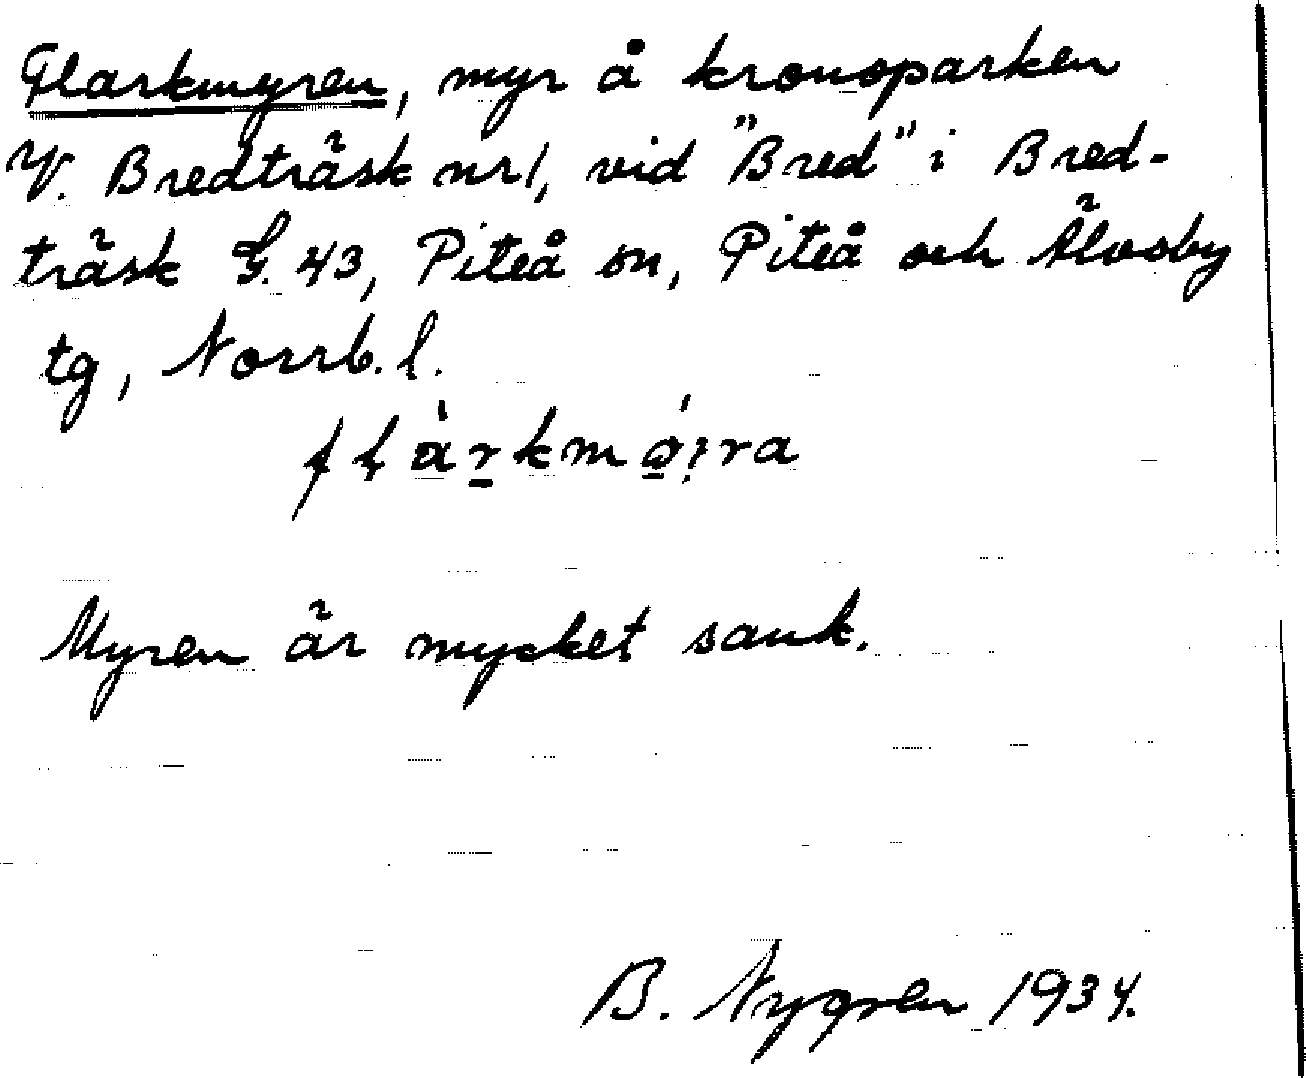 Flarkmyren, myr å kronoparken
V. Bredträsk nr 1, vid "Bred" i Bred-
träsk G. 43, Piteå sn, Piteå och Älvsby
tg, Norrb. l.
Myren är mycket sank.
B. Nygren 1934.